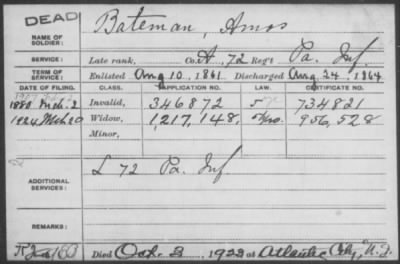 DEAD
Bateman, Amos
NAME OF
SOLDIER:
SERVICE: Late rank, Co. A, 72 Reg't Pa. Inf.
TERM OF
SERVICE: Enlisted Aug 10, 1861. Discharged Aug. 24, 1864
DATE OF FILING. CLASS. APPLICATION NO. LAW. CERTIFICATE NO.
1880 Mch. 2 Invalid, 346872 734821
1924 Widow, 1,217,148, 956,528
Minor,
ADDITIONAL
SERVICES: L 72 Pa. Inf
REMARKS:
Died Oct. 3, 1923 at Atlantic City, N.J.